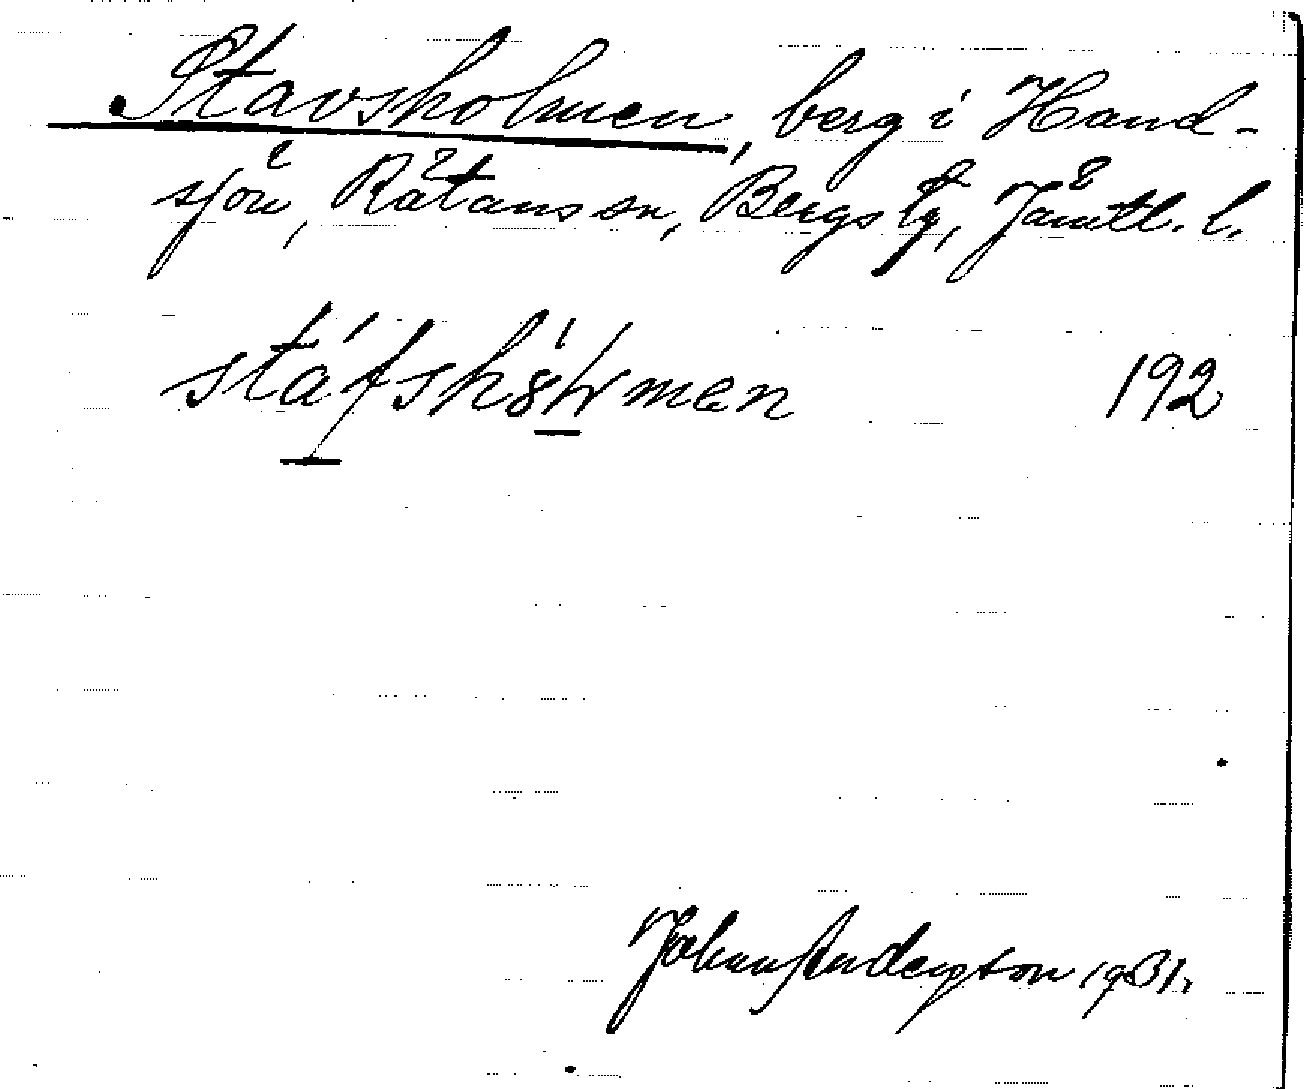 Stavsholmen, berg i Hand-
sjön, Rätans sn, Bergs tg, Jämtl. l.
192
Johan Anderson 1931.